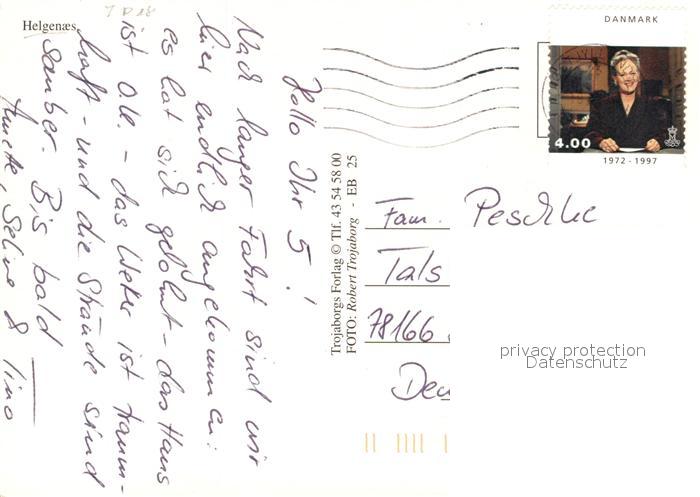 Helgenæs
Hallo Ihr 5!
Nach langer Fahrt sind wir
hier endlich angekommen:
es hat sich gelohnt - das Haus
ist o.k. - das Wetter ist traum-
haft - und die Strände sind
sauber. Bis bald
Anette, Seline & Tino
Trojaborgs Forlag © Tlf. 43 54 58 00
FOTO: Robert Trojaborg - EB 25
DANMARK
4.00
1972 - 1997
Fam. Peschke
Tals
78166
Deu
privacy protection
Datenschutz